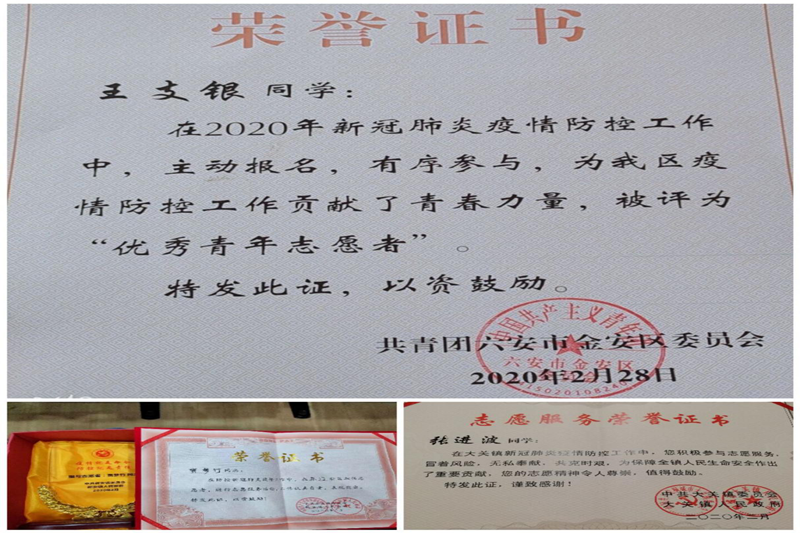 荣誉证书
王支银 同学：
在2020年新冠肺炎疫情防控工作
中，主动报名，有序参与，为我区疫
情防控工作贡献了青春力量，被评为
“优秀青年志愿者”。
特发此证，以资鼓励。
共青团六安市金安区委员会
六安市金安区
2020年2月28日
荣誉证书
志愿服务荣誉证书
张进波 同学：
在大关镇新冠肺炎疫情防控工作中，您积极参与志愿服务，
冒着风险，无私奉献，共克时艰，为保障全镇人民生命安全作出
了重要贡献，您的志愿精神令人尊崇，值得鼓励。
特发此证，谨致感谢！
中共大关镇委员会
大关镇人民政府
二〇二〇年三月